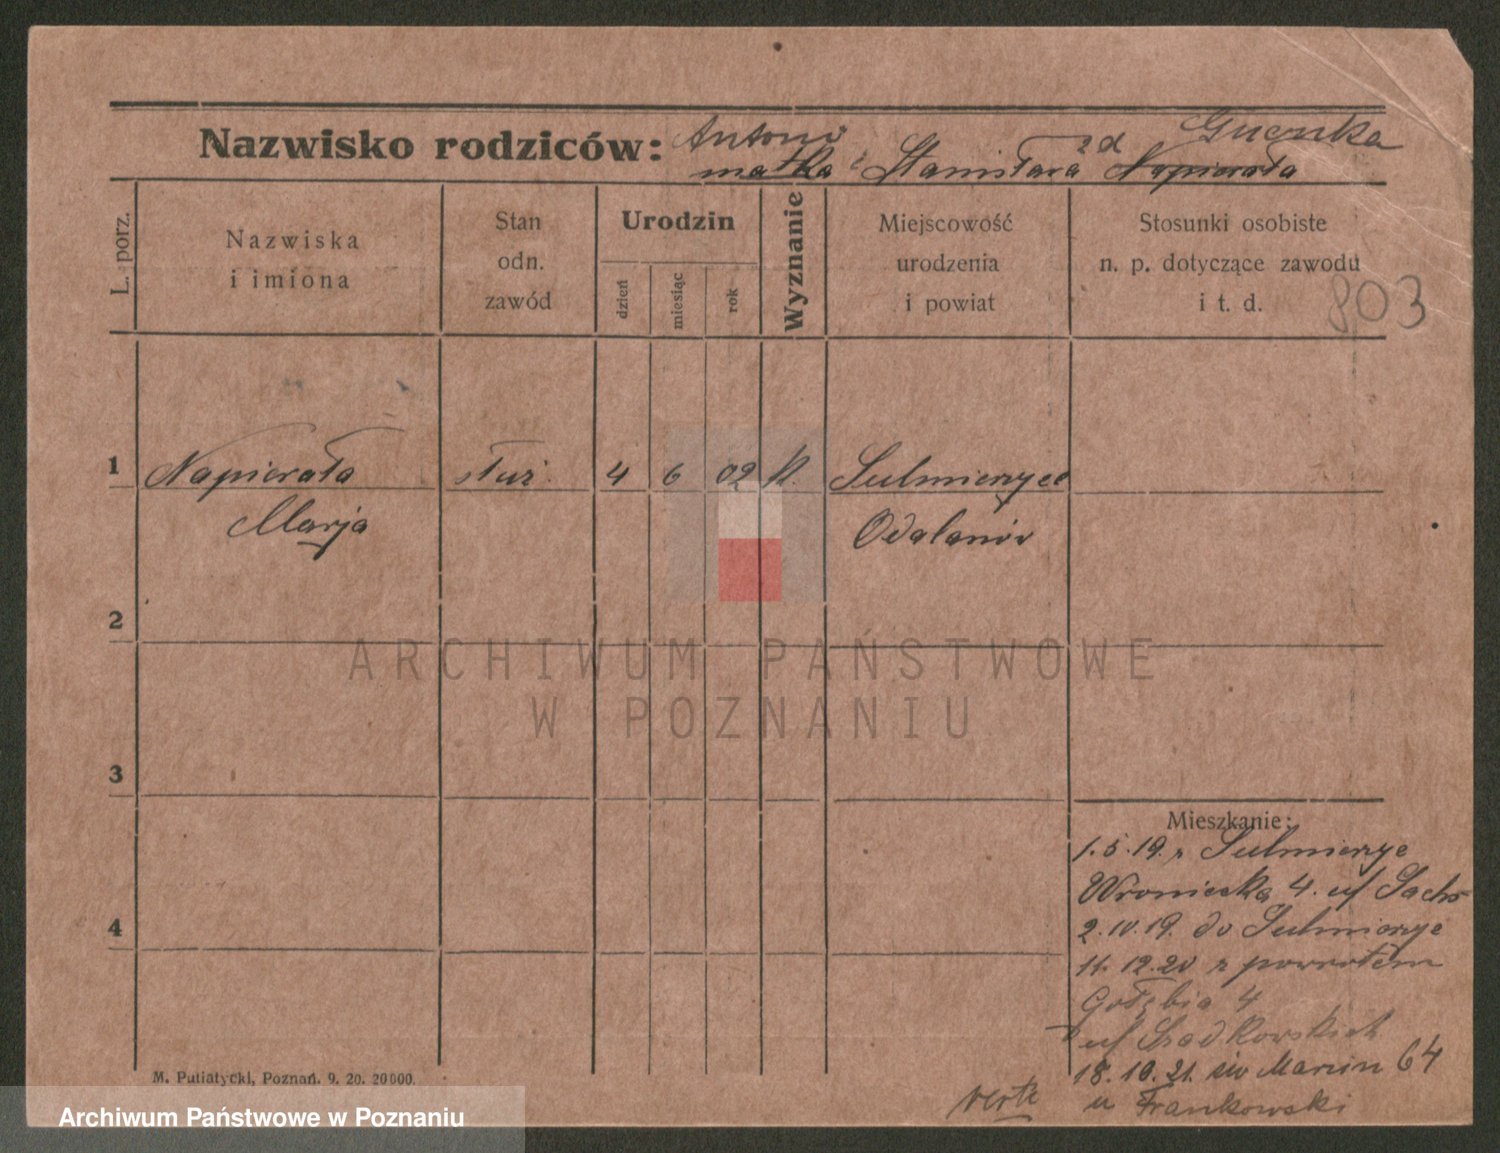 Nazwisko rodziców: Antoni
matka: Stanisława zd Napierała
L. porz.
Nazwiska
i imiona
Stan
odn.
zawód
Urodzin
dzień
miesiąc
rok
Wyznanie
Miejscowość
urodzenia
i powiat
Stosunki osobiste
n. p. dotyczące zawodu
i t. d.
803
1 Napierała służ. 4 6 02 k. Sulmierzyce
Marja Odalanów
2
3
4
ARCHIWUM PAŃSTWOWE
W POZNANIU
Mieszkanie:
1.5.19. z Sulmierzyc
Wroniecka 4. u/ Sachs
2.IV.19. do Sulmierzyc
11.12.20 z powrotem
Gołębia 4
u/ Szadkowskich
18.10.21. św Marcin 64
u Frankowski
verte
M. Putiatycki, Poznań. 9. 20. 20000.
Archiwum Państwowe w Poznaniu